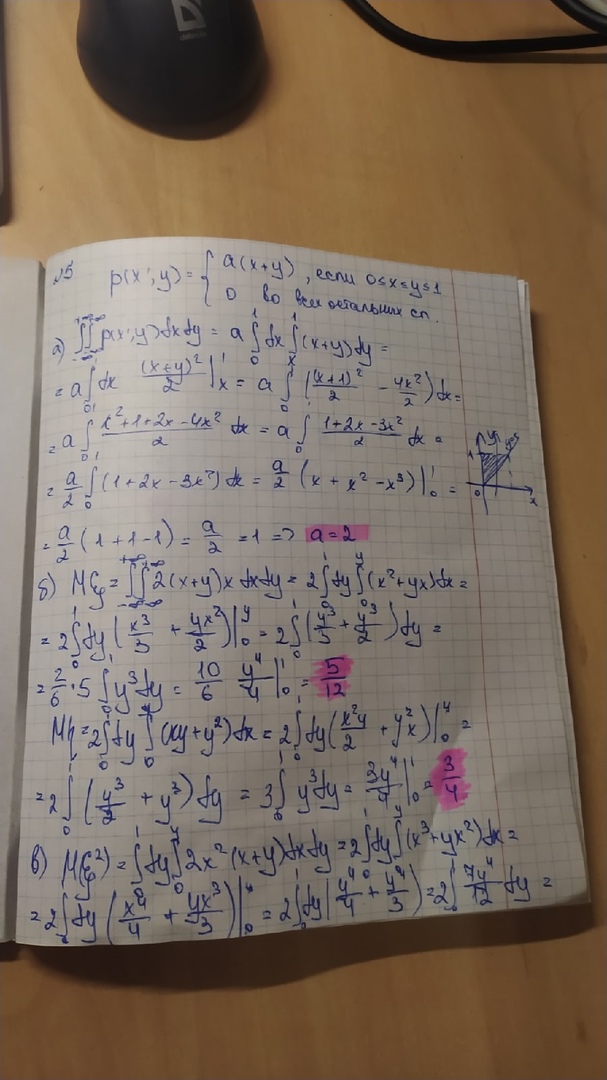 №5 p(x;y) = { a(x+y), если 0≤x≤y≤1
0 во всех остальных сл.
а) ∫∫_{-∞}^{+∞} p(x;y) dx dy = a ∫_0^1 dx ∫_x^1 (x+y) dy =
= a ∫_0^1 dx (x+y)²/2 |_x^1 = a ∫_0^1 ((x+1)²/2 - 4x²/2) dx =
= a ∫_0^1 (x²+1+2x-4x²)/2 dx = a ∫_0^1 (1+2x-3x²)/2 dx =
= a/2 ∫_0^1 (1+2x-3x²) dx = a/2 (x + x² - x³) |_0^1 =
= a/2 (1+1-1) = a/2 = 1 => a=2
б) Mξ = ∫∫_{-∞}^{+∞} 2(x+y)x dx dy = 2 ∫_0^1 dy ∫_0^y (x²+yx) dx =
= 2 ∫_0^1 dy (x³/3 + yx²/2) |_0^y = 2 ∫_0^1 (y³/3 + y³/2) dy =
= 2/6 · 5 ∫_0^1 y³ dy = 10/6 y⁴/4 |_0^1 = 5/12
Mη = 2 ∫_0^1 dy ∫_0^y (xy+y²) dx = 2 ∫_0^1 dy (x²y/2 + y²x) |_0^y =
= 2 ∫_0^1 (y³/2 + y³) dy = 3 ∫_0^1 y³ dy = 3y⁴/4 |_0^1 = 3/4
в) M(ξ²) = ∫_0^1 dy ∫_0^y 2x² (x+y) dx dy = 2 ∫_0^1 dy ∫_0^y (x³+yx²) dx =
= 2 ∫_0^1 dy (x⁴/4 + yx³/3) |_0^y = 2 ∫_0^1 dy (y⁴/4 + y⁴/3) = 2 ∫_0^1 7y⁴/12 dy =